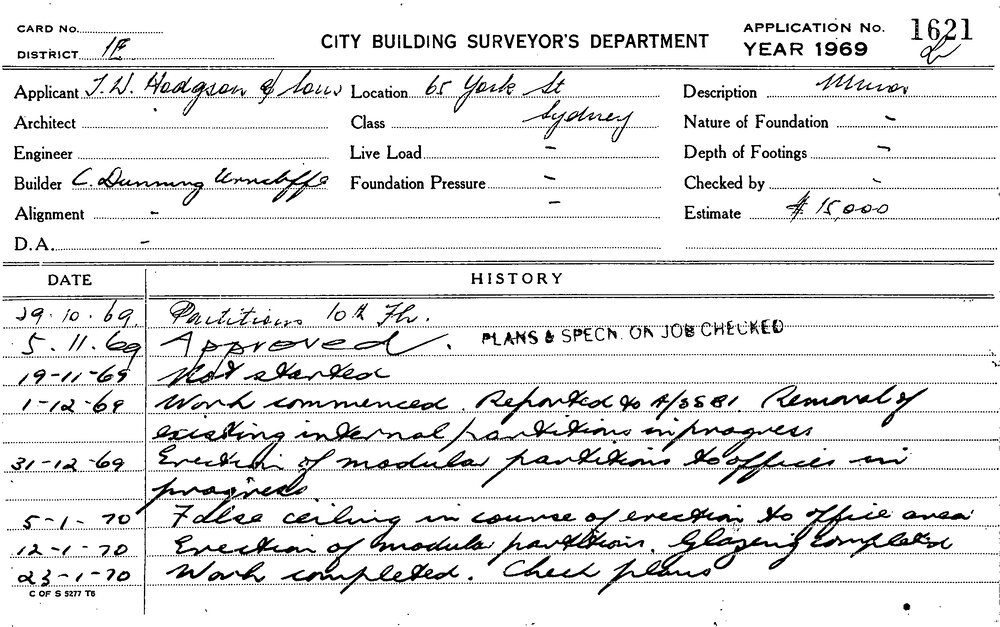 CARD No.
DISTRICT 1E
CITY BUILDING SURVEYOR'S DEPARTMENT
APPLICATION No. 1621
YEAR 1969
Applicant T. W. Hodgson & Sons Location 65 York St Description Minor
Architect Class Sydney Nature of Foundation -
Engineer Live Load - Depth of Footings -
Builder C. Dunning Foundation Pressure - Checked by -
Alignment - - Estimate $ 15,000
D.A. -
DATE HISTORY
29.10.69. Partitions 10th Flr.
5.11.69 Approved. PLANS & SPECN. ON JOB CHECKED
19-11-69 Not started
1-12-69 Work commenced. Reported to A/SSB1. Removal of
existing internal partitions in progress
31-12-69 Erection of modular partitions to offices in
progress
5-1-70 False ceiling in course of erection to office area
12-1-70 Erection of modular partitions. Glazing completed
23-1-70 Work completed. Check plans
C OF S 5277 T6